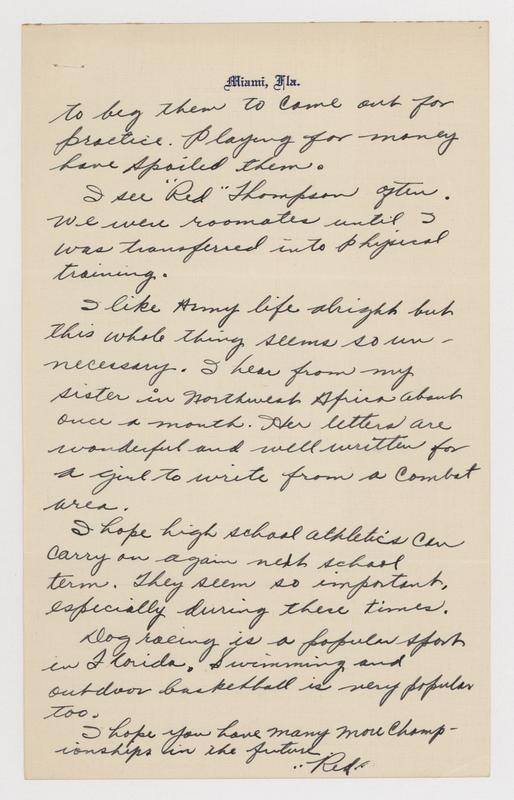 Miami, Fla.
to beg them to come out for
practice. Playing for money
have spoiled them.
I see "Red" Thompson often.
We were roomates until I
was transferred into physical
training.
I like Army life alright but
this whole thing seems so un-
necessary. I hear from my
sister in Northwest Africa about
once a month. Her letters are
wonderful and well written for
a girl to write from a combat
area.
I hope high school athletics can
carry on again next school
term. They seem so important,
especially during these times.
Dog racing is a popular sport
in Florida. Swimming and
outdoor basketball is very popular
too.
I hope you have many more champ-
ionships in the future.
"Red"